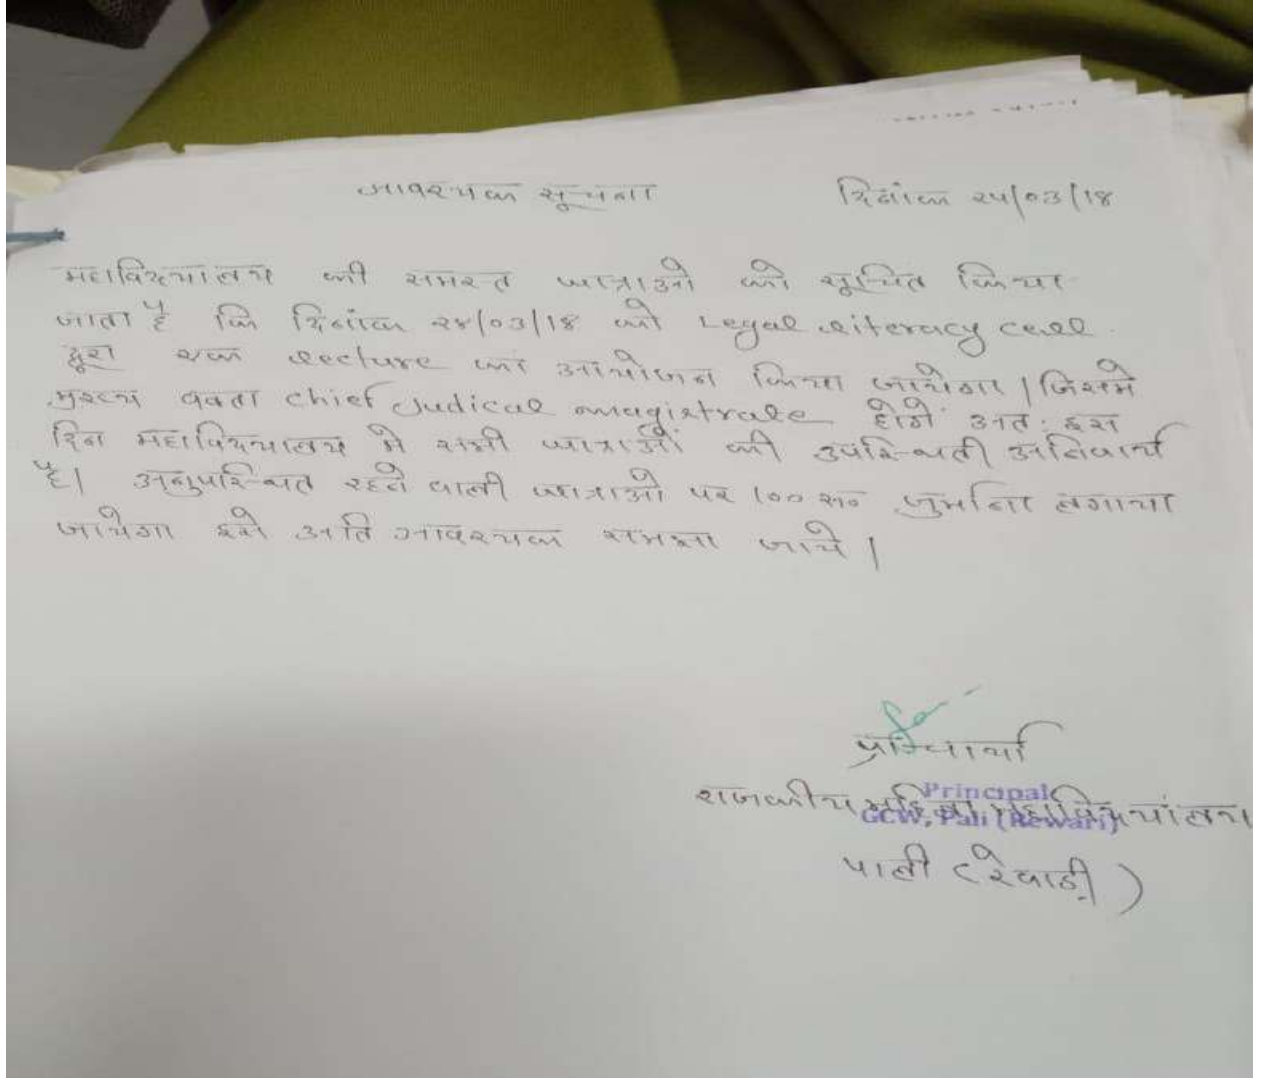 आवश्यक सूचना दिनांक २५/०३/१८
महाविद्यालय की समस्त छात्राओ को सूचित किया
जाता है कि दिनांक २४/०३/१८ को Legal Literacy cell
द्वारा एक lecture का आयोजन किया जायेगा। जिसमे
मुख्य वक्ता chief Judical magistrate होगें अतः इस
दिन महाविद्यालय मे सभी छात्राओं की उपस्थिती अनिवार्य
है। अनुपस्थित रहने वाली छात्राओ पर १०० रू० जुर्माना लगाया
जायेगा इसे अति आवश्यक समझा जाये।
प्राचार्या
राजकीय महिला महाविद्यालय
Principal
GCW, Pali (Rewari)
पाली (रेवाड़ी)